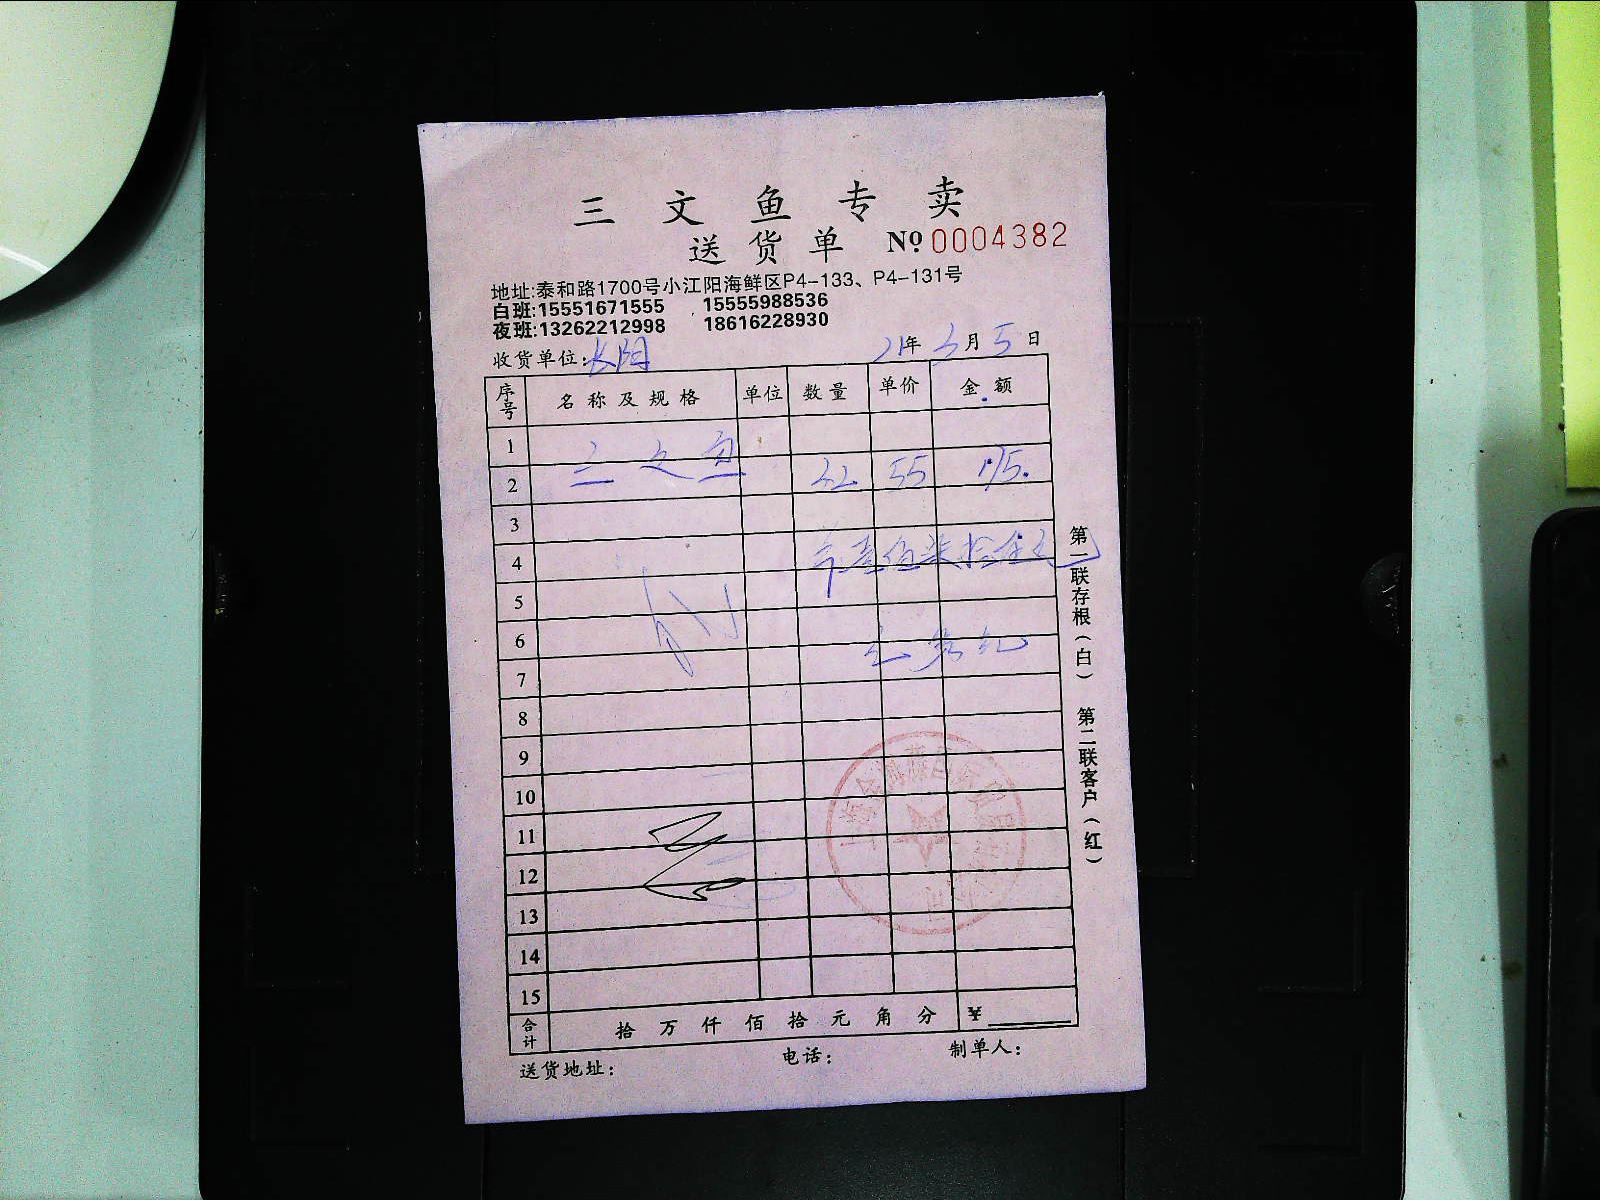 三文鱼专卖
送货单 № 0004382
地址:泰和路1700号小江阳海鲜区P4-133、P4-131号
白班:15551671555 15555988536
夜班:13262212998 18616228930
收货单位: 长阳 21年3月5日
序号 名称及规格 单位 数量 单价 金额
1
2 三文鱼 55 175.
3
4 壹佰柒拾伍元
5
6
7
8
9
10
11
12
13
14
15
合计 拾 万 仟 佰 拾 元 角 分 ¥
送货地址: 电话: 制单人:
第一联存根(白) 第二联客户(红)